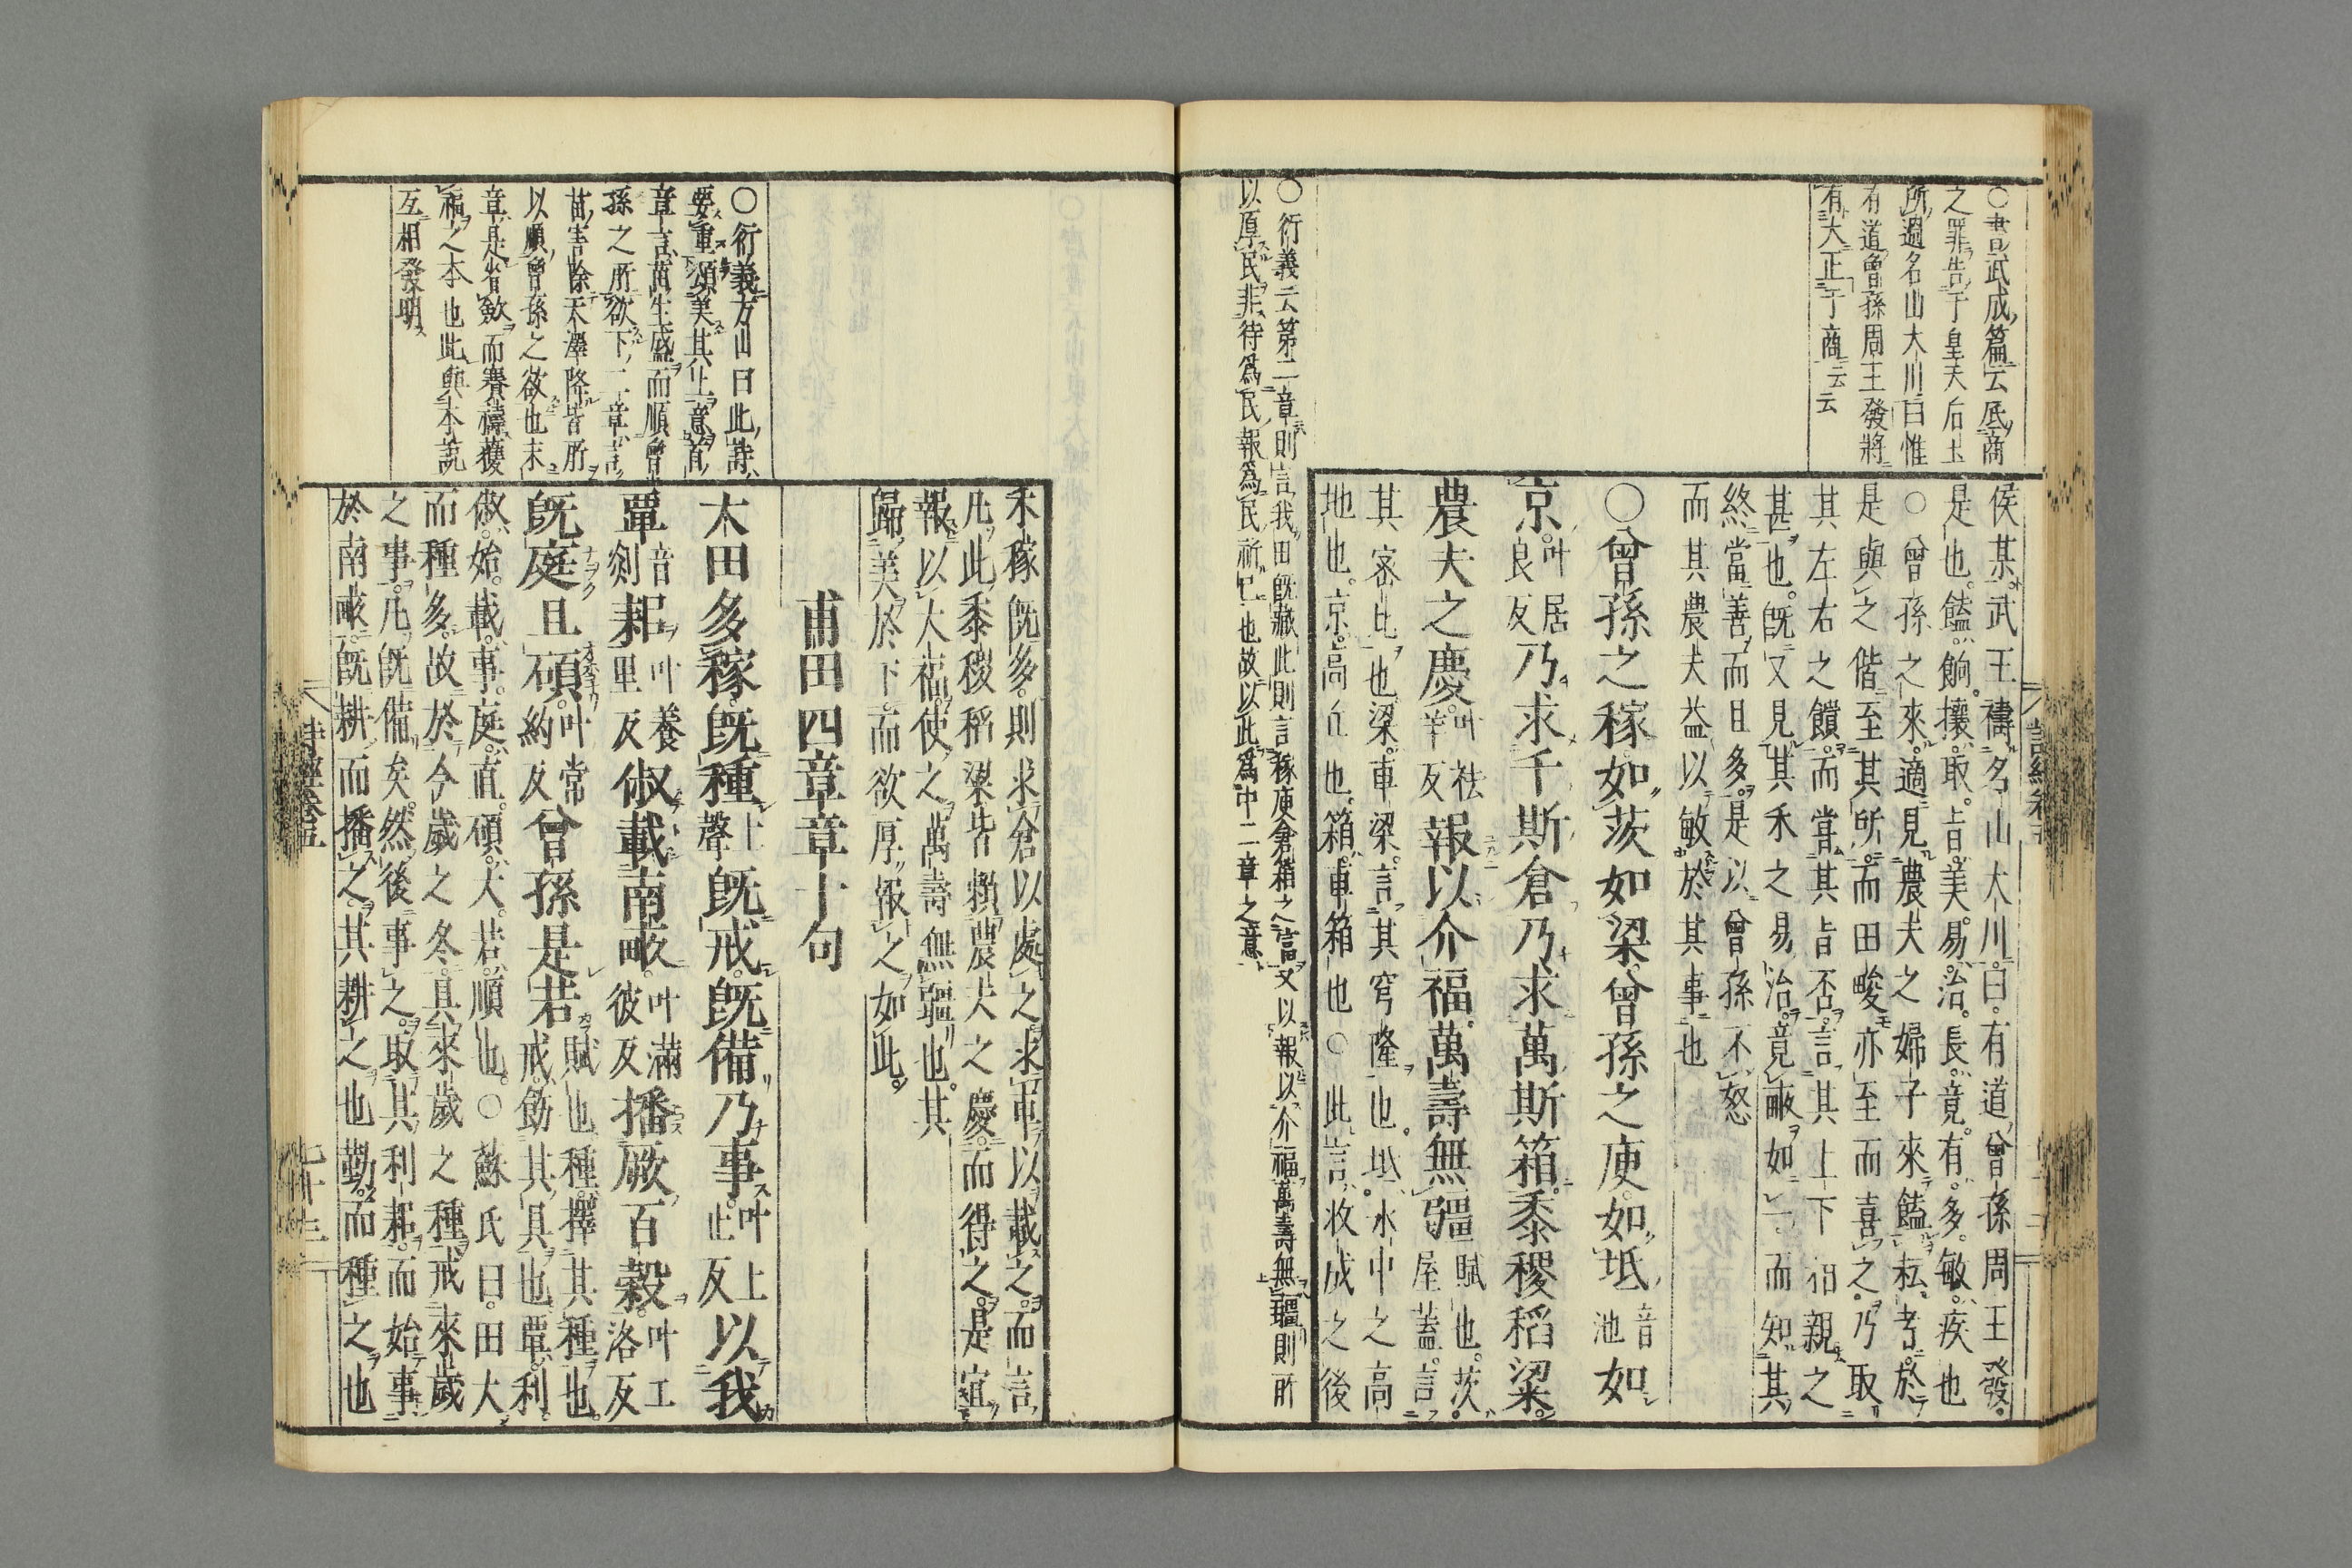 ○書武成篇云底商
之罪告于皇天后土
所過名山大川曰惟
有道曾孫周王發將
有大正于商云云
侯某。武王禱名山大川曰。有道曾孫周王發。
是也。饁。餉。攘。取。旨。美。易。治。長。竟。有。多。敏。疾也
○曾孫之來。適見農夫之婦子來饁耘者。於
是與之偕至其所。而田畯亦至而喜之。乃取
其左右之饋。而嘗其旨否。言其上下相親之
甚也。既又見其禾之易治。竟畝如一。而知其
終當善而且多。是以曾孫不怒
而其農夫益以敏於其事也
○曾孫之稼如茨如梁。曾孫之庾如坻音池如
京。叶居良反乃求千斯倉乃求萬斯箱。黍稷稻粱。
農夫之慶叶祛羊反報以介福萬壽無疆賦也。茨。屋蓋。言
其密比也。梁。車梁。言其穹隆也。坻。水中之高
地也。京。高丘也。箱。車箱也○此言收成之後
○衍義云第二章則言我田既藏此則言稼庾倉箱之富又以報以介福萬壽無疆則所
以厚民非待爲民報爲民祈已也故以此爲中二章之意
禾稼既多。則求倉以處之。求車以載之。而言
凡此黍稷稻粱皆賴農夫之慶。而得之。是宜
報以大福。使之萬壽無疆也。其
歸美於下。而欲厚報之如此。
甫田四章章十句
○衍義方山曰此詩
要重頌美其上意首
章言萬生盛而順曾
孫之所欲下二章言
苗害除天澤降皆所
以順曾孫之欲也末
章是省歛而賽禱獲
福之本也此與本說
互相發明
大田多稼既種上聲既戒。既備乃事。叶上止反以我
覃音剡耜叶養里反俶載南畝。叶滿彼反播厥百穀。叶工洛反
既庭且碩。叶常約反曾孫是若賦也。種。擇其種也。戒。飭其具也。覃。利。
俶。始。載。事。庭。直。碩。大。若。順也。○蘇氏曰。田大
而種多。故於今歲之冬。具來歲之種。戒來歲
之事。凡既備矣。然後事之。取其利耜。而始事
於南畝。既耕而播之。其耕之也勤。而種之也
詩經卷五